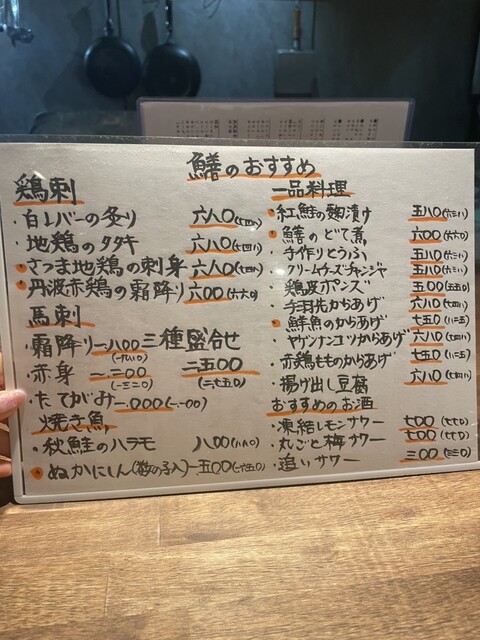 鱔のおすすめ
鶏刺
・白レバーの炙り 六八〇(七四八)
・地鶏のタタキ 六八〇(七四八)
・さつま地鶏の刺身 六八〇(七四八)
・丹波赤鶏の霜降り 六〇〇(六六〇)
馬刺
・霜降り 一八〇〇(一九八〇) 三種盛合せ
・赤身 一二〇〇(一三二〇) 二五〇〇(二、七五〇)
・たてがみ 一、〇〇〇(一、一〇〇)
焼き魚
・秋鮭のハラモ 八〇〇(八八〇)
・ぬかにしん(数の子入) 一五〇〇(一六五〇)
一品料理
・紅鮭の麹漬け 五八〇(六三八)
・鱔のどて煮 六〇〇(六六〇)
・手作りとうふ 五八〇(六三八)
・クリームチーズチャンジャ 五八〇(六三八)
・鶏皮ポンズ 五〇〇(五五〇)
・手羽先からあげ 六八〇(七四八)
・鮮魚のからあげ 七五〇(八二五)
・ヤゲンナンコツからあげ 六八〇(七四八)
・赤鶏ももからあげ 七五〇(八二五)
・揚げ出し豆腐 六八〇(七四八)
おすすめのお酒
・凍結レモンサワー 七〇〇(七七〇)
・丸ごと梅サワー 七〇〇(七七〇)
・追いサワー 三〇〇(三三〇)